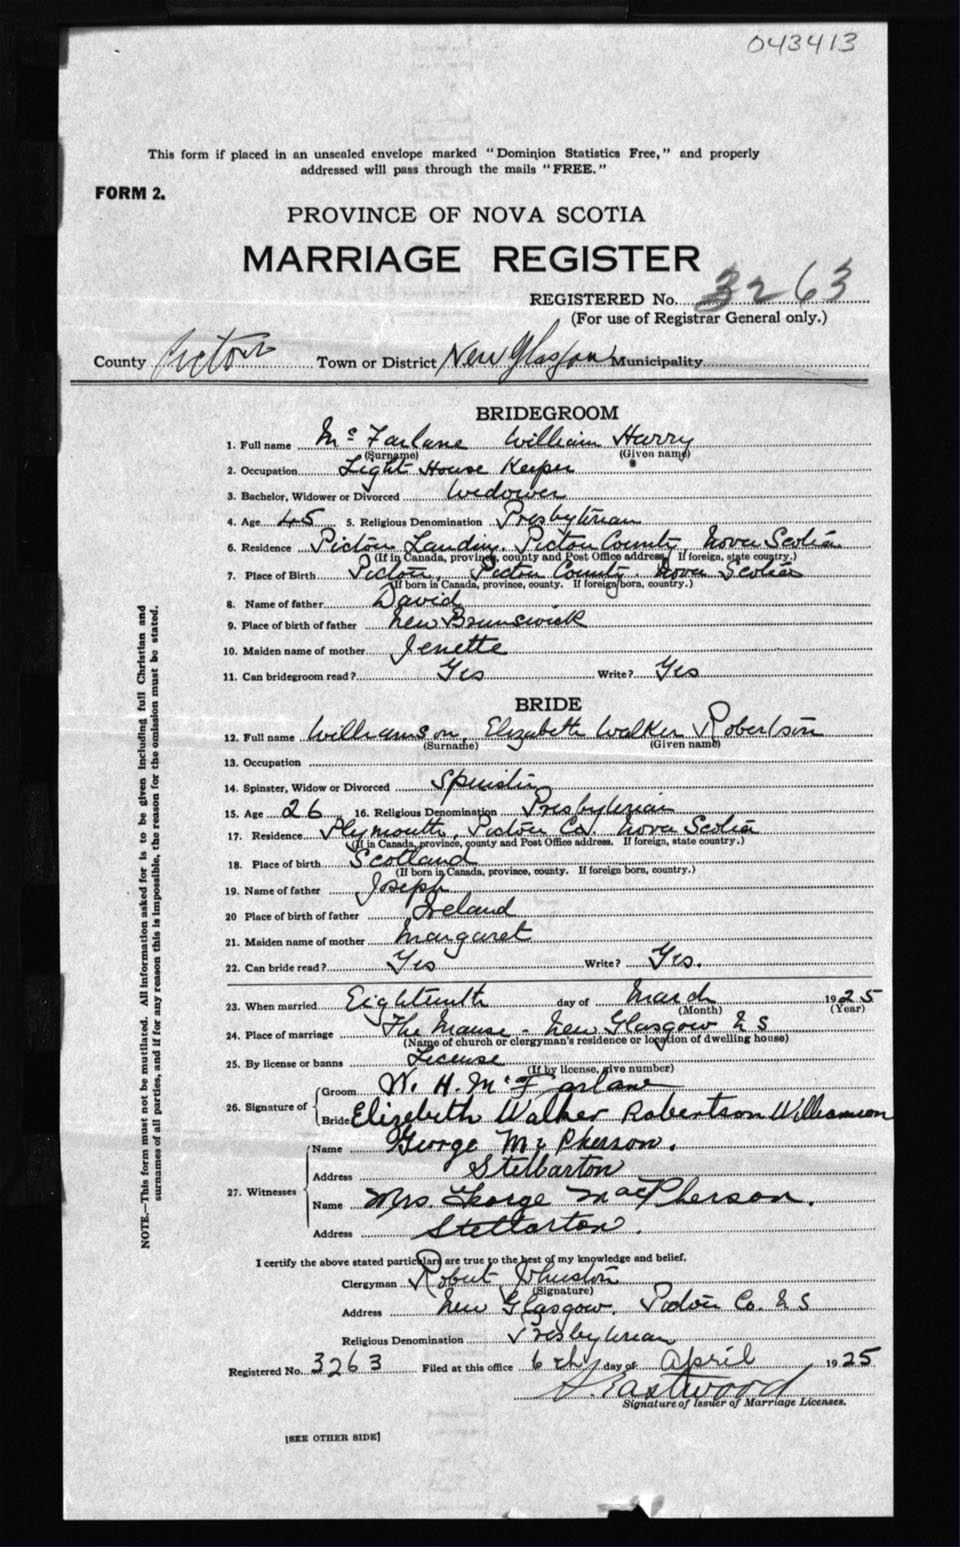 043413
This form if placed in an unsealed envelope marked "Dominion Statistics Free," and properly
addressed will pass through the mails "FREE."
FORM 2.
PROVINCE OF NOVA SCOTIA
MARRIAGE REGISTER
REGISTERED No. 3263
(For use of Registrar General only.)
County Pictou Town or District New Glasgow Municipality
BRIDEGROOM
1. Full name McFarlane William Harry
(Surname) (Given name)
2. Occupation Light House Keeper
3. Bachelor, Widower or Divorced Widower
4. Age 45 5. Religious Denomination Presbyterian
6. Residence Pictou Landing, Pictou County, Nova Scotia
(If in Canada, province, county and Post Office address. If foreign, state country.)
7. Place of Birth Pictou, Pictou County, Nova Scotia
(If born in Canada, province, county. If foreign born, country.)
8. Name of father David
9. Place of birth of father New Brunswick
10. Maiden name of mother Jenette
11. Can bridegroom read? Yes Write? Yes
BRIDE
12. Full name Williamson, Elizabeth Walker Robertson
(Surname) (Given name)
13. Occupation
14. Spinster, Widow or Divorced Spinster
15. Age 26 16. Religious Denomination Presbyterian
17. Residence Plymouth, Pictou Co. Nova Scotia
(If in Canada, province, county and Post Office address. If foreign, state country.)
18. Place of birth Scotland
(If born in Canada, province, county. If foreign born, country.)
19. Name of father Joseph
20 Place of birth of father Ireland
21. Maiden name of mother Margaret
22. Can bride read? Yes Write? Yes.
23. When married Eighteenth day of March 1925
(Month) (Year)
24. Place of marriage The Manse - New Glasgow N S
(Name of church or clergyman's residence or location of dwelling house)
25. By license or banns License
(If by license, give number)
26. Signature of Groom W. H. McFarlane
Bride Elizebeth Walker Robertson Williamson
27. Witnesses Name George McPherson.
Address Stellarton
Name Mrs. George MacPherson.
Address Stellarton.
I certify the above stated particulars are true to the best of my knowledge and belief.
Clergyman Robert Johnston
(Signature)
Address New Glasgow, Pictou Co. N S
Religious Denomination Presbyterian
Registered No. 3263 Filed at this office 6th day of April 1925
Eastwood
Signature of Issuer of Marriage Licenses.
[SEE OTHER SIDE]
NOTE.—This form must not be mutilated. All information asked for is to be given including full Christian and
surnames of all parties, and if for any reason this is impossible, the reason for the omission must be stated.